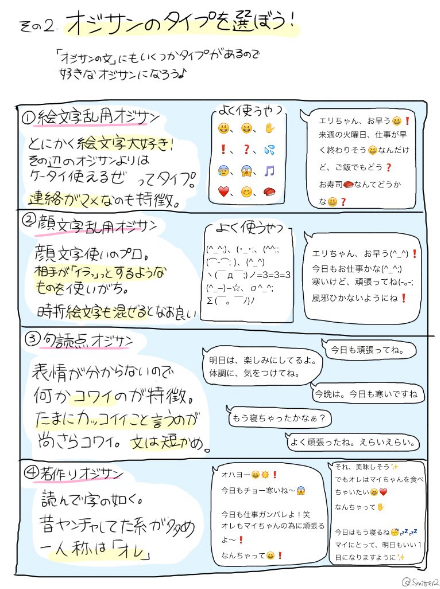 その2. オジサンのタイプを選ぼう!
「オジサンの文」にもいくつかタイプがあるので
好きなオジサンになろう♪
①絵文字乱用オジサン
とにかく絵文字大好き!
その辺のオジサンよりは
ケータイ使えるぜ ってタイプ。
連絡がマメなのも特徴。
よく使うやつ
😀、😄、✋
❗、❓、💦
😰、😱、🎵
❤️、😊、🍣
エリちゃん、お早う😄❗
来週の火曜日、仕事が早
く終わりそう😄なんだけ
ど、ご飯でもどう❓
お寿司🍣なんてどうか
な😄❓
②顔文字乱用オジサン
顔文字使いのプロ。
相手が「イラッ」とするような
ものを使いがち。
時折絵文字も混ぜるとなお良い
よく使うやつ
(^_^;)、(-_-;、(^^;
(⌒-⌒; )、(^_^)
ヽ(´Д｀;)ノ=3=3=3
(^_−)−☆、σ^_^;
Σ(￣。￣ノ)ノ
エリちゃん、お早う(^_^)❗
今日もお仕事かな(^_^;)
寒いけど、頑張ってね(-_-;
風邪ひかないようにね❗
③句読点オジサン
表情が分からないので
何かコワイのが特徴。
たまにカッコイイこと言うのが
尚さらコワイ。文は短かめ。
今日も頑張ってね。
明日は、楽しみにしてるよ。
体調に、気をつけてね。
今晩は。今日も寒いですね
もう寝ちゃったかなぁ?
よく頑張ったね。えらいえらい。
④若作りオジサン
読んで字の如く。
昔ヤンチャしてた系が多め
一人称は「オレ」
オハヨー😄☀️❗
今日もチョー寒いね〜😱
今日も仕事ガンバレよ!笑
オレもマイちゃんの為に頑張る
よ〜❗
なんちゃって😄❗
それ、美味しそう✨
でもオレはマイちゃんを食べ
ちゃいたい😄❤️
なんちゃって✋
今日はもう寝るね😴💤💤
マイにとって、明日もいい1
日になりますように✨